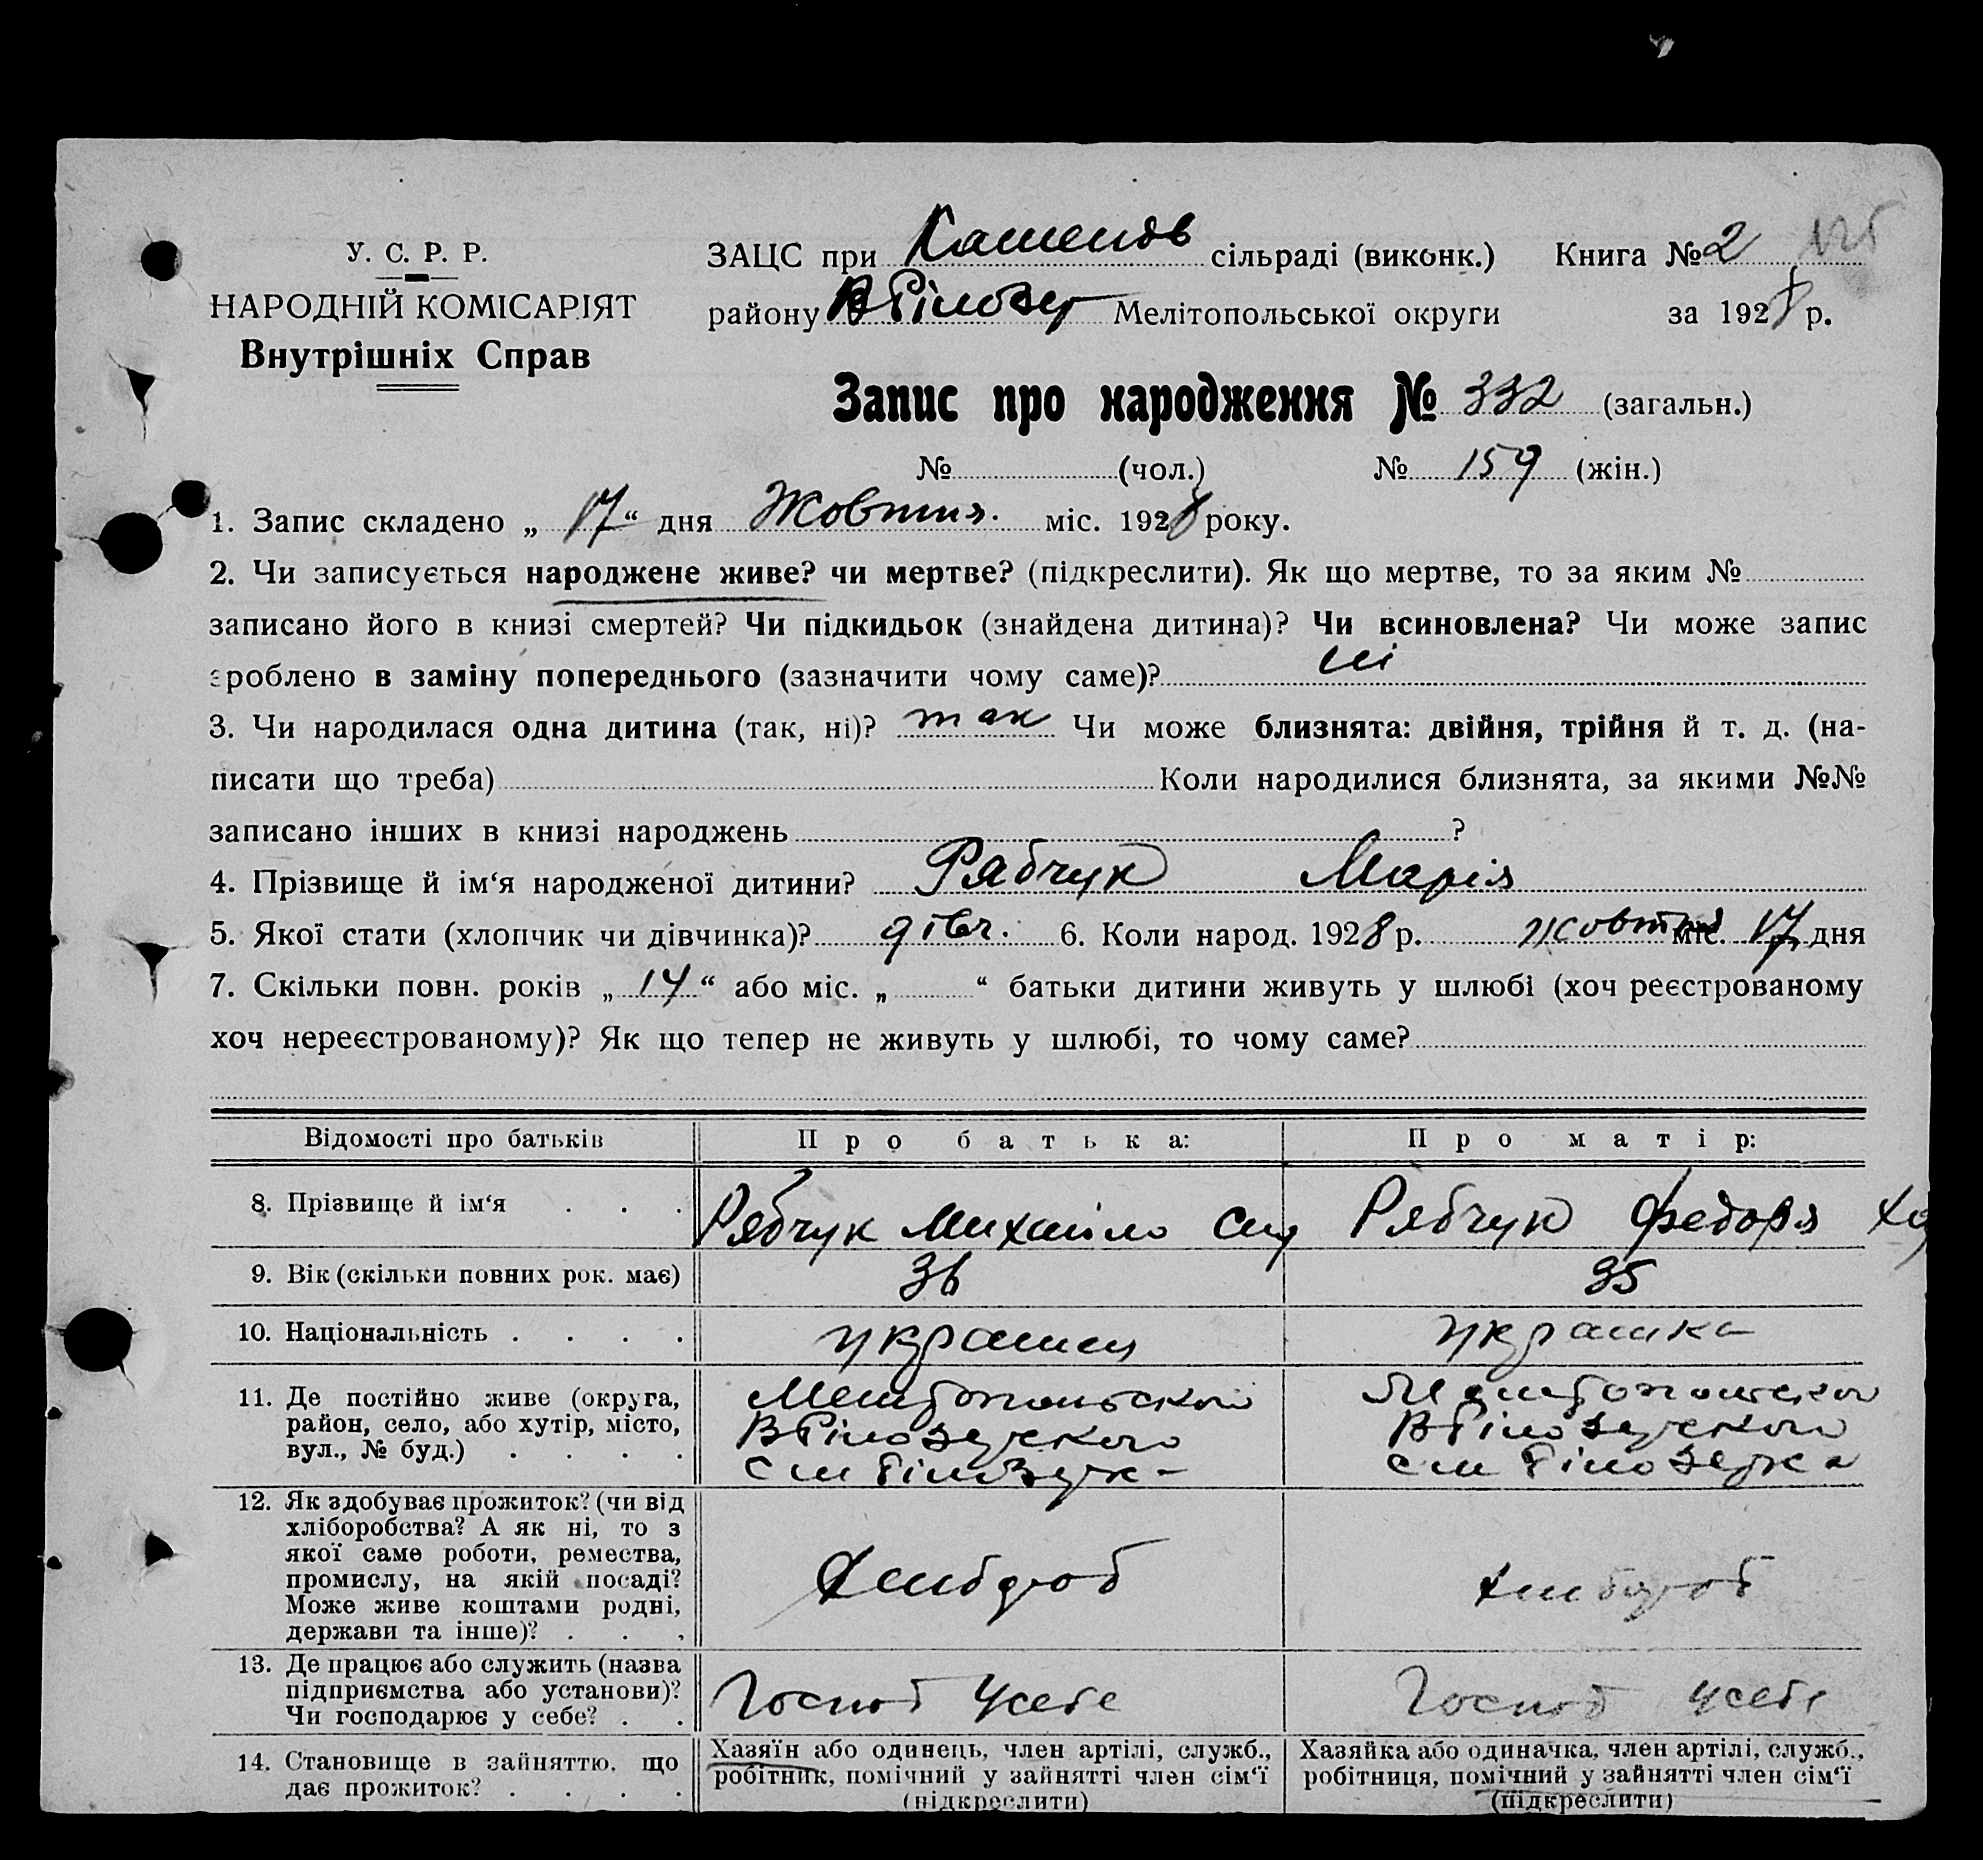 У. С. Р. Р.
НАРОДНІЙ КОМІСАРІЯТ
Внутрішніх Справ
ЗАЦС при сільраді (виконк.) Книга № 2
району ВБілозер Мелітопольської округи за 1928 р.
Запис про народження № 332 (загальн.)
№ (чол.) № 159 (жін.)
1. Запис складено „ 17 “ дня Жовтня. міс. 1928 року.
2. Чи записується народжене живе? чи мертве? (підкреслити). Як що мертве, то за яким №
записано його в книзі смертей? Чи підкидьок (знайдена дитина)? Чи всиновлена? Чи може запис
зроблено в заміну попереднього (зазначити чому саме)? ні
3. Чи народилася одна дитина (так, ні)? так Чи може близнята: двійня, трійня й т. д. (на-
писати що треба) Коли народилися близнята, за якими №№
записано інших в книзі народжень ?
4. Прізвище й ім‘я народженої дитини? Рябчук Марія
5. Якої стати (хлопчик чи дівчинка)? дівч. 6. Коли народ. 1928 р. жовтня міс. 17 дня
7. Скільки повн. років „ 14 “ або міс. „ “ батьки дитини живуть у шлюбі (хоч реєстрованому
хоч нереєстрованому)? Як що тепер не живуть у шлюбі, то чому саме?
Відомості про батьків Про батька: Про матір:
8. Прізвище й ім‘я . . . Рябчук Михайло Рябчук Федора
9. Вік (скільки повних рок. має) 36 35
10. Національність . . . . украинец украинка
11. Де постійно живе (округа,
район, село, або хутір, місто,
вул., № буд.) . . . .
Мелитопольскои
ВБілозерского
с м Білозерк-
Мелитопольскои
ВБілозерского
с м Білозерка
12. Як здобуває прожиток? (чи від
хліборобства? А як ні, то з
якої саме роботи, ремества,
промислу, на якій посаді?
Може живе коштами родні,
держави та інше)? . . .
Хлибороб
хлибороб
13. Де працює або служить (назва
підприємства або установи)?
Чи господарює у себе? . .
Господ усебе
Господ усебе
14. Становище в зайняттю, що
дає прожиток? . . . .
Хазяїн або одинець, член артілі, служб.,
робітник, помічний у зайнятті член сім‘ї
(підкреслити)
Хазяйка або одиначка, член артілі, служб.,
робітниця, помічний у зайнятті член сім‘ї
(підкреслити)